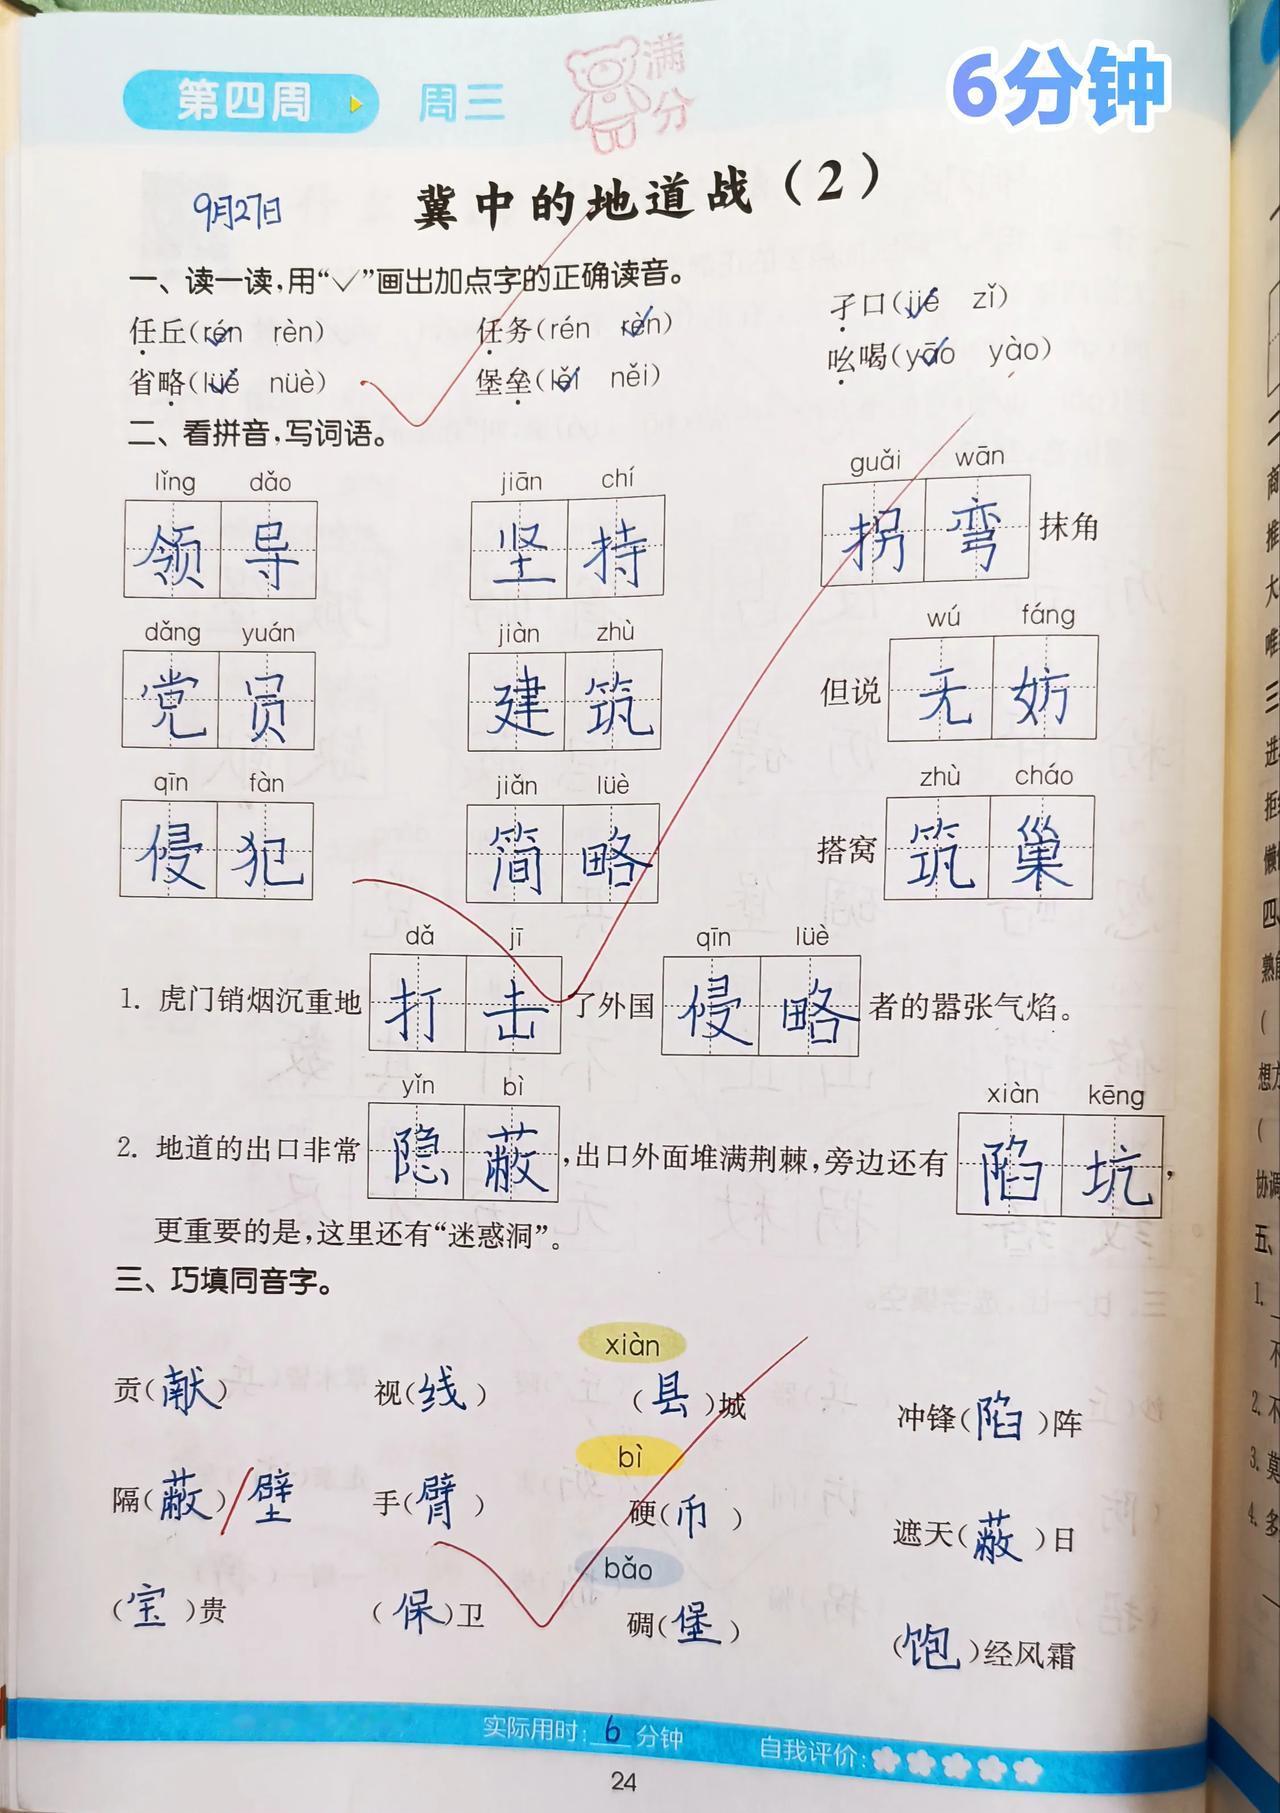 第四周 周三 满分 6分钟
9月27日 冀中的地道战（2）
一、读一读，用“✓”画出加点字的正确读音。
任丘(rén rèn) 任务(rén rèn) 孑口(jié zǐ)
省略(lüè nüè) 堡垒(lěi něi) 吆喝(yāo yào)
二、看拼音，写词语。
lǐng dǎo jiān chí guǎi wān
领导 坚持 拐弯抹角
dǎng yuán jiàn zhù wú fáng
党员 建筑 但说无妨
qīn fàn jiǎn lüè zhù cháo
侵犯 简略 搭窝筑巢
dǎ jī qīn lüè
1. 虎门销烟沉重地打击了外国侵略者的嚣张气焰。
yǐn bì xiàn kēng
2. 地道的出口非常隐蔽，出口外面堆满荆棘，旁边还有陷坑，
更重要的是，这里还有“迷惑洞”。
三、巧填同音字。
xiàn
贡(献) 视(线) (县)城 冲锋(陷)阵
bì
隔(蔽)壁 手(臂) 硬(币) 遮天(蔽)日
bǎo
(宝)贵 (保)卫 碉(堡) (饱)经风霜
实际用时：6分钟 自我评价：
24